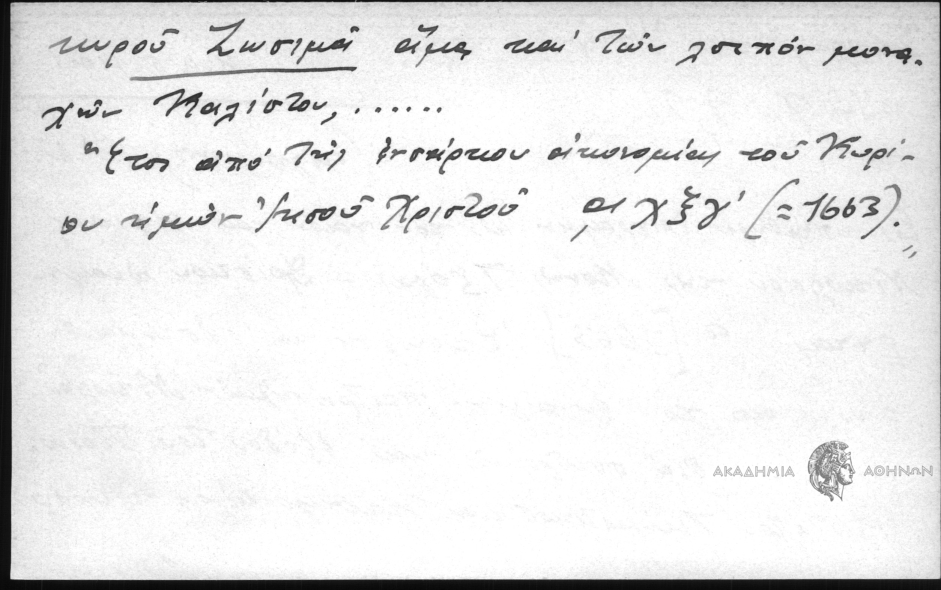 κυροῦ Ζωσιμᾶ ἅμα καὶ τῶν λοιπόν μονα-
χῶν Καλίστου, ......
Ἔτοι ἀπό τῆς ἐνσάρκου οἰκονομίας τοῦ Κυρί-
ου ἡμῶν Ἰησοῦ Χριστοῦ ͵αχξγ' (=1663)."
ΑΚΑΔΗΜΙΑ ΑΘΗΝΩΝ